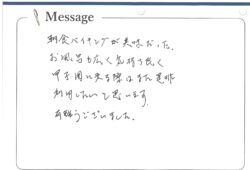 Message
朝食バイキングが美味だった。
お風呂も広く気持ち良く
甲子園に来る際はまた是非
利用したいと思います。
有難うございました。